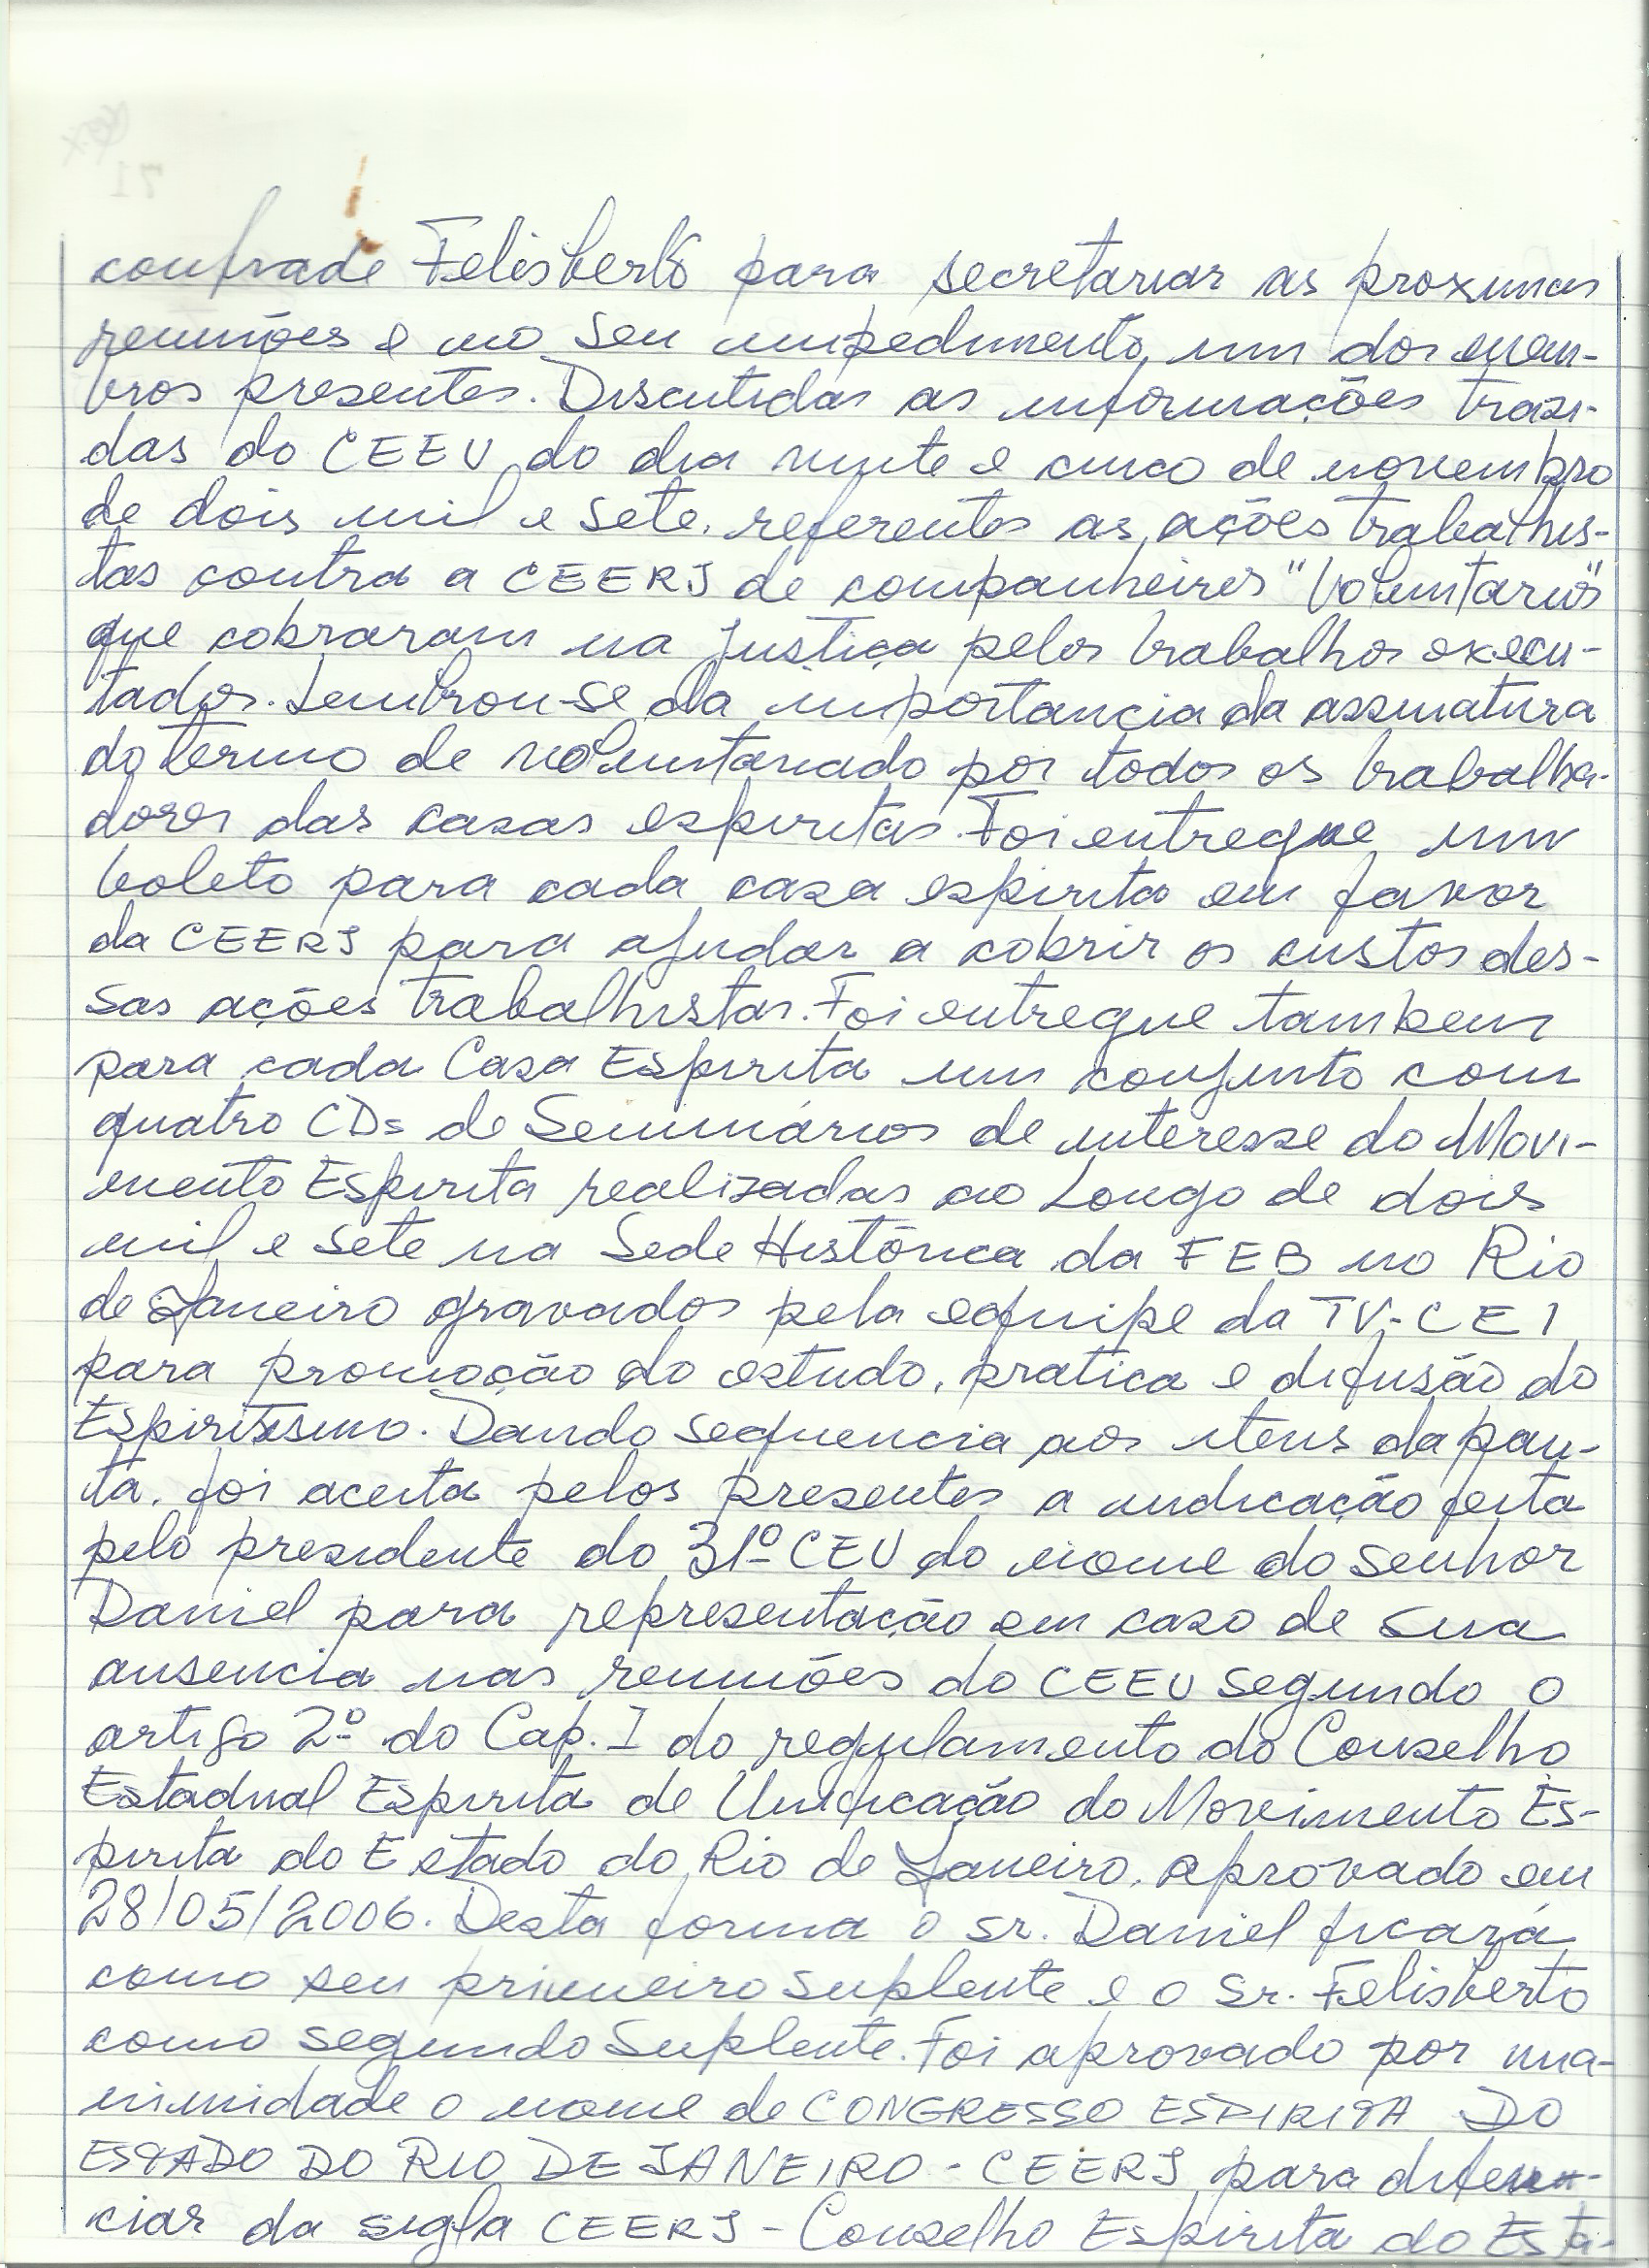 confrade Felisberto para secretariar as proximas
reuniões e no seu impedimento, um dos mem-
bros presentes. Discutidas as informações trazi-
das do CEEU do dia vinte e cinco de novembro
de dois mil e sete, referentes as ações trabalhis-
tas contra a CEERJ de companheiros "Voluntarios"
que cobraram na justiça pelos trabalhos execu-
tados. Lembrou-se da importancia da assinatura
do termo de voluntariado por todos os trabalha-
dores das casas espiritas. Foi entregue um
boleto para cada casa espirita em favor
da CEERJ para ajudar a cobrir os custos des-
sas ações trabalhistas. Foi entregue tambem
para cada Casa Espirita um conjunto com
quatro CDs de Seminários de interesse do Movi-
mento Espirita realizadas ao Longo de dois
mil e sete na Sede Histórica da FEB no Rio
de Janeiro gravados pela equipe da TV-CEI
para promoção do estudo, pratica e difusão do
Espiritismo. Dando sequencia aos itens da pau-
ta, foi aceita pelos presentes a indicação feita
pelo presidente do 31º CEU do nome do senhor
Daniel para representação em caso de sua
ausencia nas reuniões do CEEU segundo o
artigo 2º do Cap. I do regulamento do Conselho
Estadual Espirita de Unificação do Movimento Es-
pirita do Estado do Rio de Janeiro, aprovado em
28/05/2006. Desta forma o sr. Daniel ficará
como seu primeiro suplente e o Sr. Felisberto
como segundo Suplente. Foi aprovado por una-
nimidade o nome de CONGRESSO ESPIRITA DO
ESTADO DO RIO DE JANEIRO - CEERJ para diferen-
ciar da sigla CEERJ - Conselho Espirita do Esta-